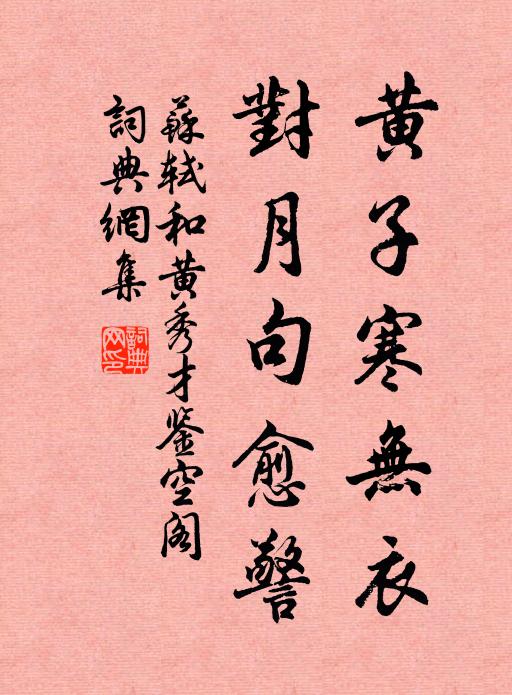 黄子寒無衣
對月句愈警
蘇軾和黄秀才鉴空阁
詞典網集
詞典网印